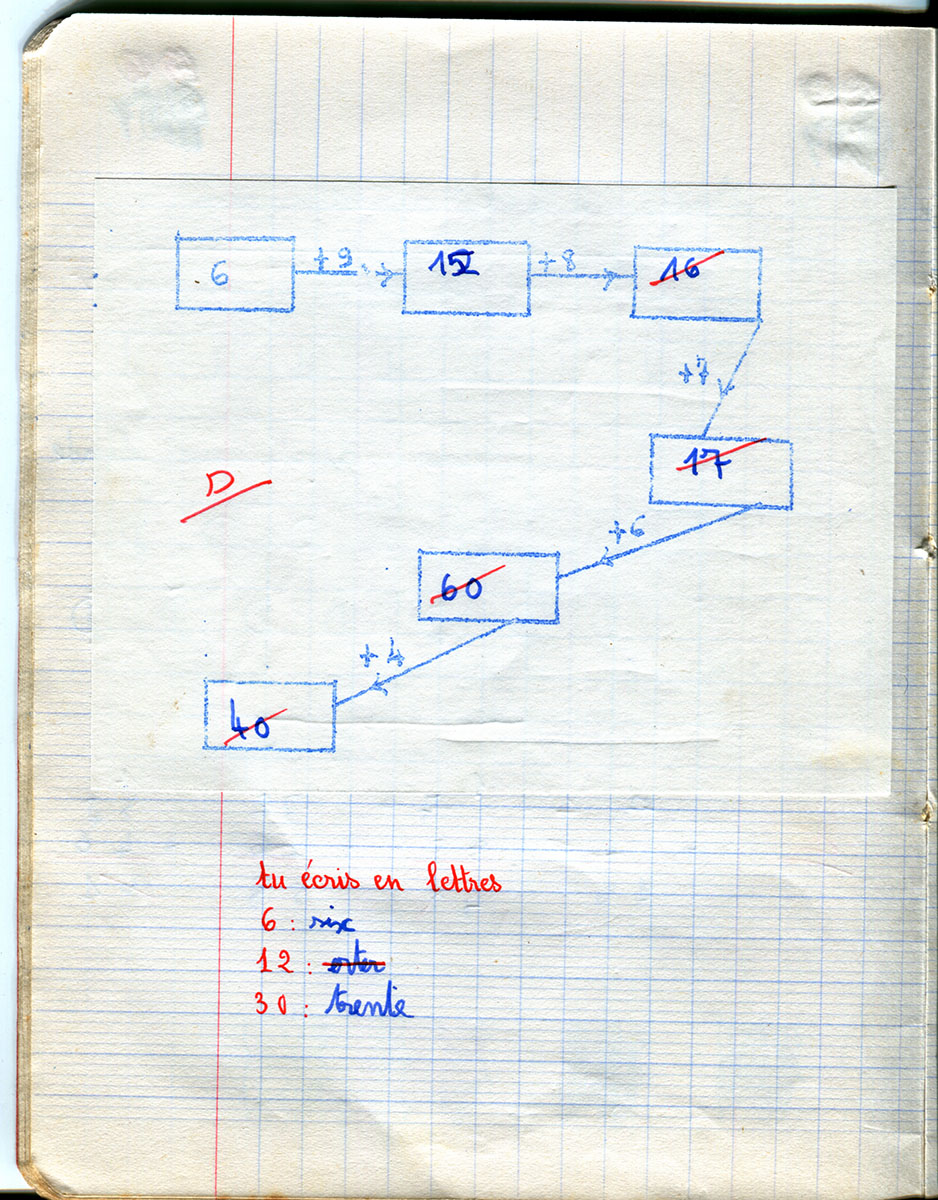 6 +9 15 +8 16
+7
17
D
+6
60
+4
40
tu écris en lettres
6 : six
12 :
30 : trente